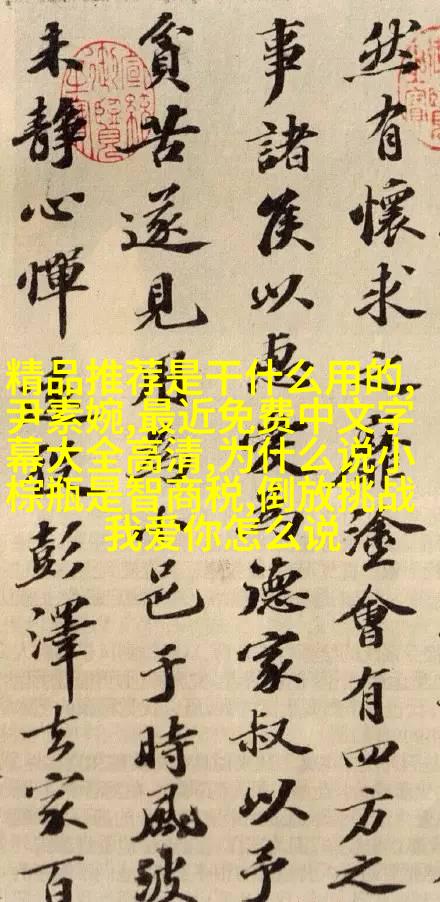 然有懷求塗會有四方之
事諸侯以惠愛為德家叔以予
貧苦遂見用邑于時風波
未静心憚遠役彭澤去家百
精品推荐是干什么用的,
尹素婉,最近免费中文字
幕大全高清,为什么说小
棕瓶是智商税,倒放挑战
我爱你怎么说